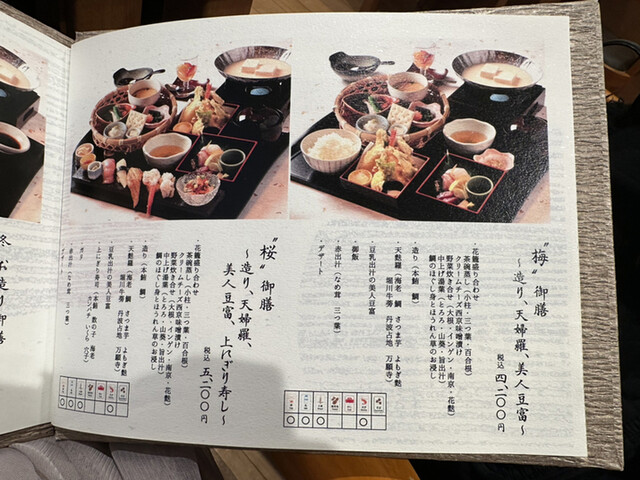 "梅"御膳
〜造り、天婦羅、美人豆富〜
税込 四、二〇〇円
・花籠盛り合わせ
茶碗蒸し(小柱・三つ葉・百合根)
クリームチーズ西京味噌漬け
野菜炊き合せ(大根・インゲン・南京・花麩)
中上げ湯葉(とろろ・山葵・旨出汁)
鯛のほぐし身とほうれん草のお浸し
・造り(本鮪 鯛)
・天麩羅(海老 鯛 さつま芋 よもぎ麩
堀川牛蒡 丹波占地 万願寺)
・豆乳出汁の美人豆富
・御飯
・赤出汁(なめ茸 三つ葉)
・デザート
"桜"御膳
〜造り、天婦羅、
美人豆富、上にぎり寿し〜
税込 五、二〇〇円
・花籠盛り合わせ
茶碗蒸し(小柱・三つ葉・百合根)
クリームチーズ西京味噌漬け
野菜炊き合せ(大根・インゲン・南京・花麩)
中上げ湯葉(とろろ・山葵・旨出汁)
鯛のほぐし身とほうれん草のお浸し
・造り(本鮪 鯛)
・天麩羅(海老 鯛 さつま芋 よもぎ麩
堀川牛蒡 丹波占地 万願寺)
・豆乳出汁の美人豆富
・上にぎり寿司(本鮪 数の子 海老
いくら 穴子)
・赤出汁(なめ茸 三つ葉)
冬 お造り御膳